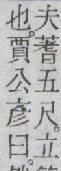 夫蓍五尺。立
也。賈公彥曰。